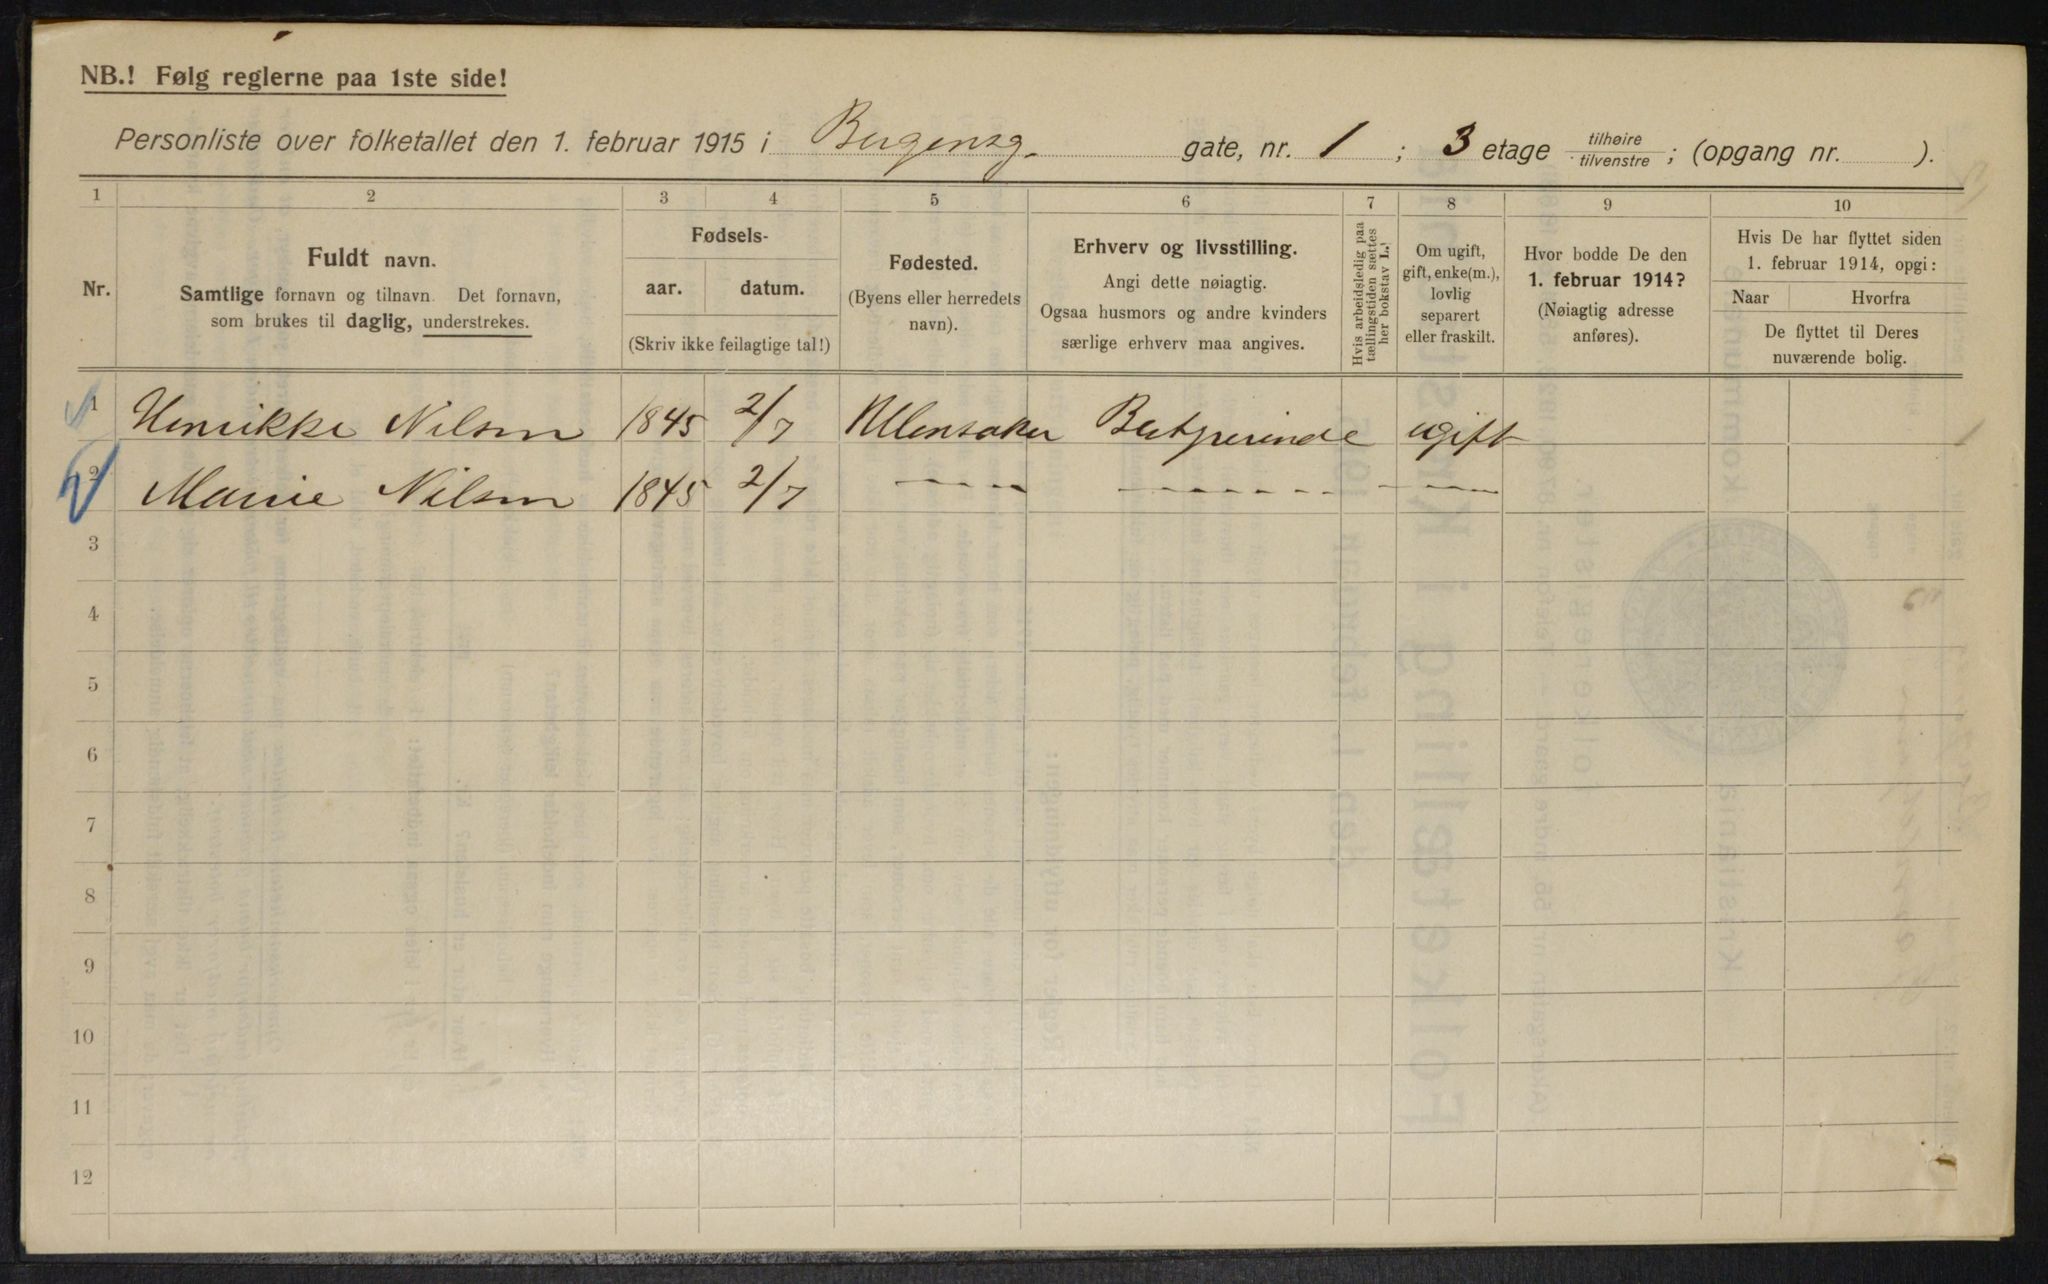 NB.! Følg reglerne paa 1ste side!
Personliste over folketallet den 1. februar 1915 i Bergensg. gate, nr. 1 ; 3 etage tilhøire tilvenstre ; (opgang nr. ).
1 2 3 4 5 6 7 8 9 10
Nr.
Fuldt navn.
Samtlige fornavn og tilnavn. Det fornavn,
som brukes til daglig, understrekes.
Fødsels-
aar. datum.
(Skriv ikke feilagtige tal!)
Fødested.
(Byens eller herredets
navn).
Erhverv og livsstilling.
Angi dette nøiagtig.
Ogsaa husmors og andre kvinders
særlige erhverv maa angives.
Hvis arbeidsledig paa
tællingstiden sættes
her bokstav L.!
Om ugift,
gift, enke(m.),
lovlig
separert
eller fraskilt.
Hvor bodde De den
1. februar 1914?
(Nøiagtig adresse
anføres).
Hvis De har flyttet siden
1. februar 1914, opgi:
Naar Hvorfra
De flyttet til Deres
nuværende bolig.
1 Henrikke Nilsen 1845 2/7 Ullensaker ugift
2 Marie Nilsen 1845 2/7 – – – – – – – – – – – – – –
3
4
5
6
7
8
9
10
11
12